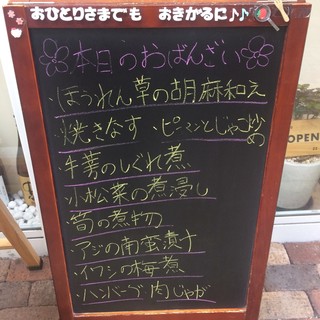 おひとりさまでも おきがるに♪♪
本日のおばんざい
・ほうれん草の胡麻和え
・焼きなす ・ピーマンとじゃこ炒め
・牛蒡のしぐれ煮
・小松菜の煮浸し
・筍の煮物
・アジの南蛮漬け
・イワシの梅煮
・ハンバーグ 肉じゃが
OPEN